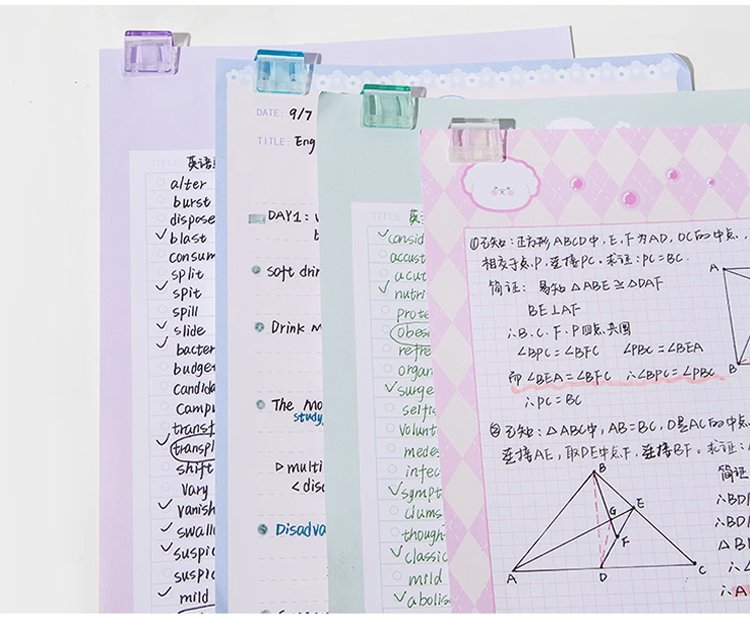 英语
alter
burst
dispose
blast
consum
split
spit
spill
slide
bacter
budget
candida
camp
transf
transpl
shift
vary
vanish
swall
suspic
suspic
mild
DATE: 9/7
TITLE: Eng
DAY1:
soft drin
Drink M
The mo
study
multi
<disc
Disadva
TITLE: 英
consid
accust
acut
nutri
prote
obes
refre
organ
surge
selfis
volunt
medes
infec
sympt
ciums
though
classic
mild
abolis
①已知:正方形ABCD中,E,F为AD,DC的中点,
相交于点P,连接PC。求证:PC=BC.
简证: 易知△ABE≌△DAF
BE⊥AF
∴B.C.F.P四点共圆
∠BPC=∠BFC ∠PBC=∠BEA
即∠BEA=∠BFC ∴∠BPC=∠PBC
∴PC=BC
A
B
②已知:△ABC中,AB=BC,D是AC的中点
连接AE,取DE中点F,连接BF。求证:
简证
∴BD
∴BD
△B
∴∠
∴A
B
E
G
F
A
D
C